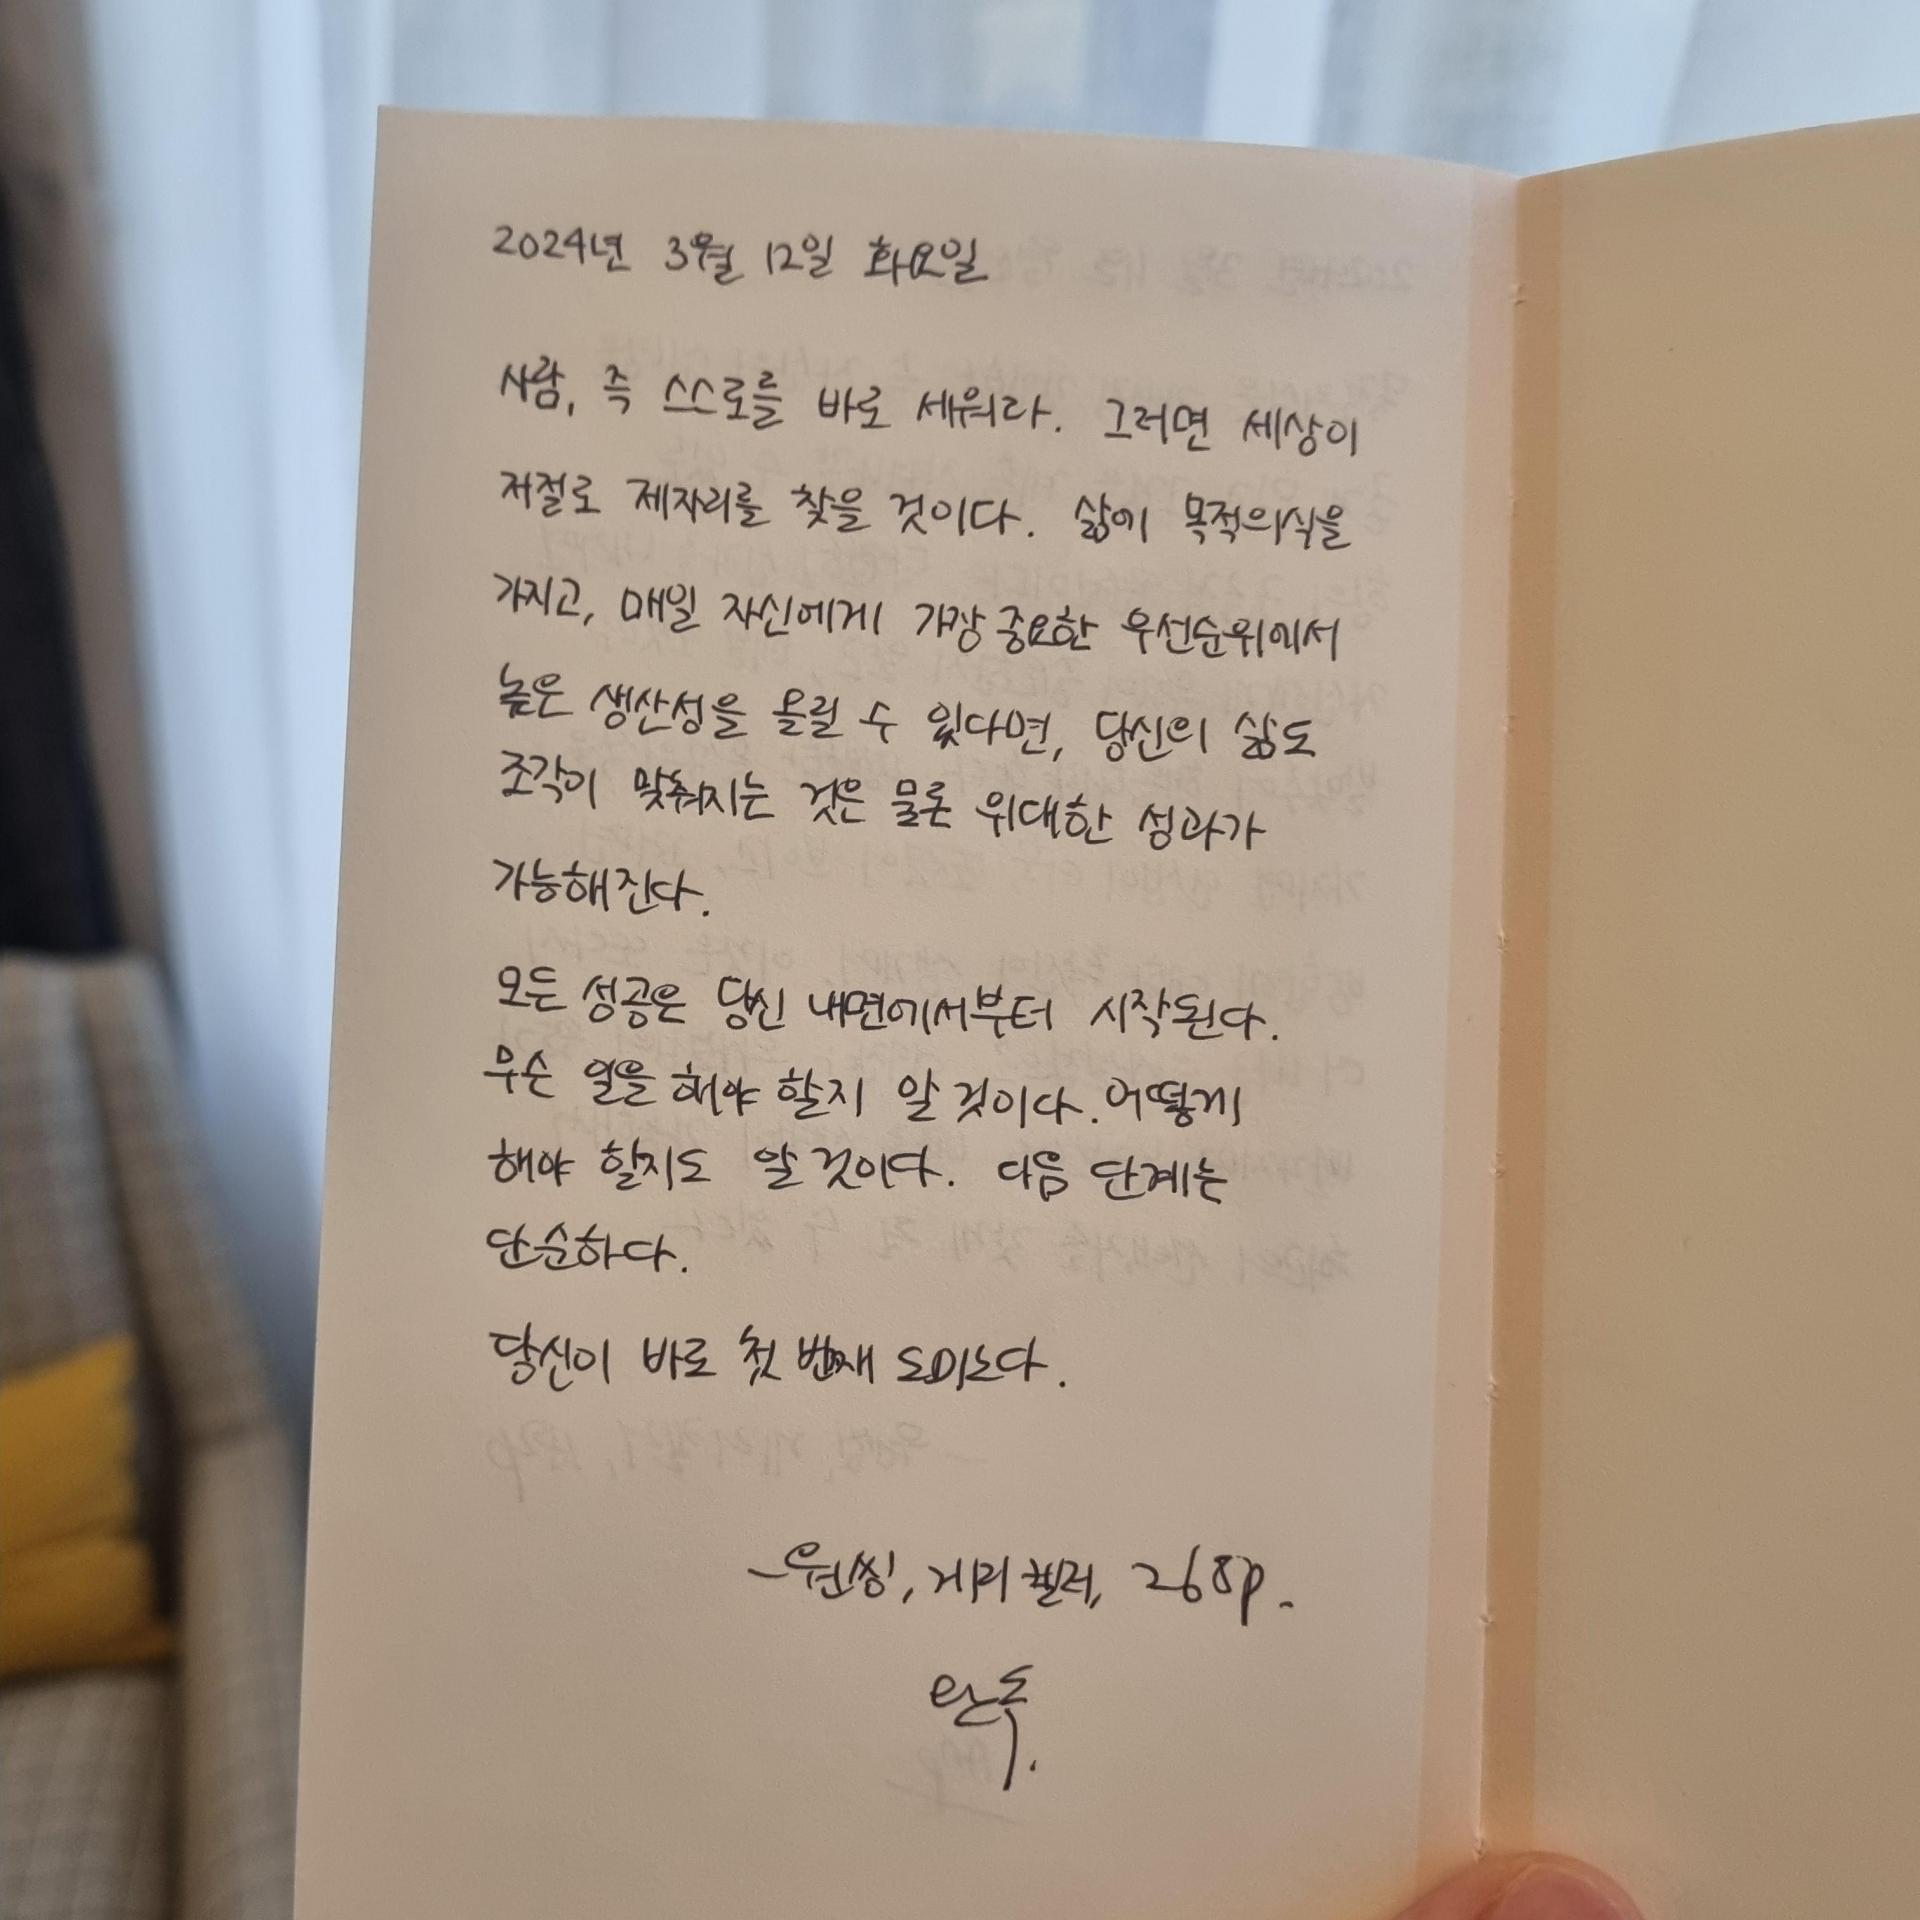 2024년 3월 12일 화요일
사람, 즉 스스로를 바로 세워라. 그러면 세상이
저절로 제자리를 찾을 것이다. 삶에 목적의식을
가지고, 매일 자신에게 가장 중요한 우선순위에서
높은 생산성을 올릴 수 있다면, 당신의 삶도
조각이 맞춰지는 것은 물론 위대한 성과가
가능해진다.
모든 성공은 당신 내면에서부터 시작된다.
무슨 일을 해야 할지 알 것이다. 어떻게
해야 할지도 알 것이다. 다음 단계는
단순하다.
당신이 바로 첫 번째 도미노다.
- 원씽, 게리 켈러, 268p.
완독.